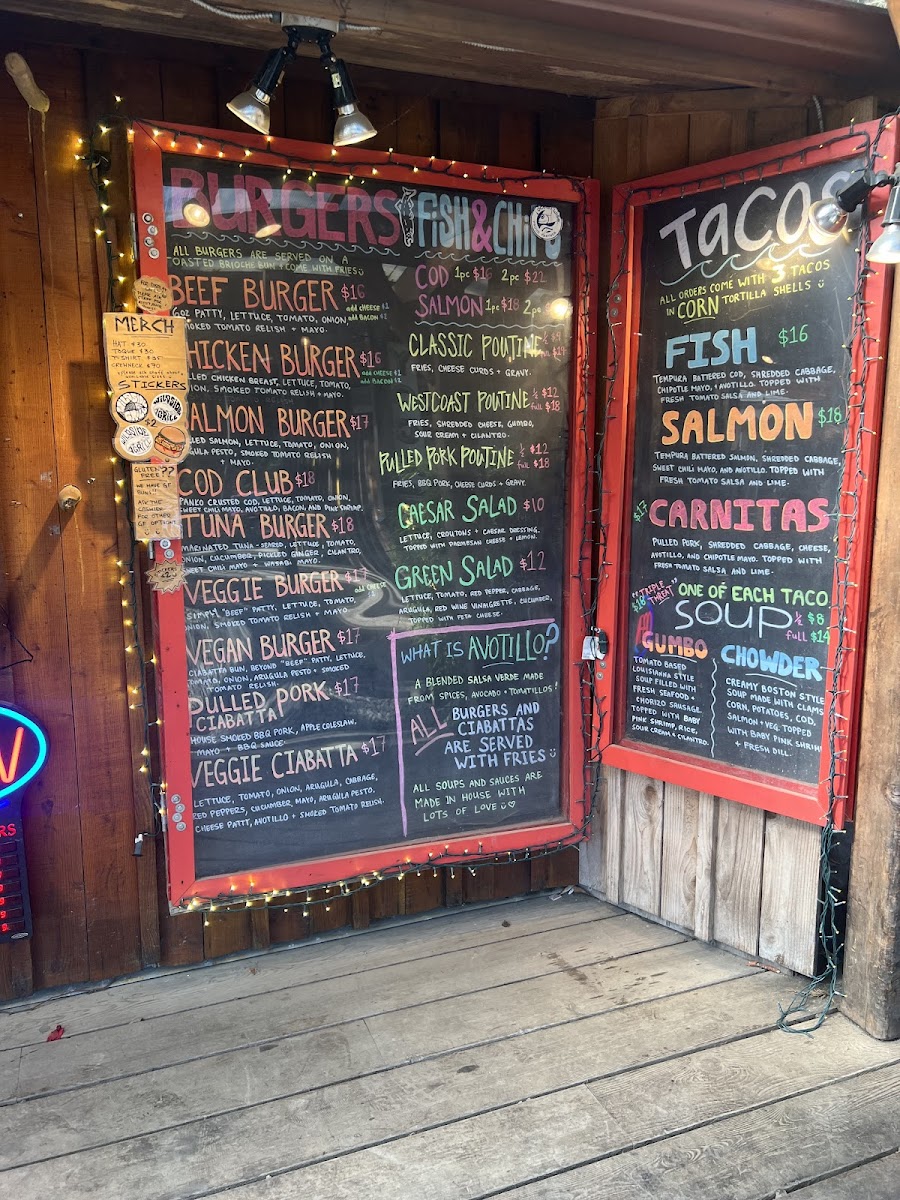 BURGERS
ALL BURGERS ARE SERVED ON A
TOASTED BRIOCHE BUN + COME WITH FRIES
BEEF BURGER $16
6OZ PATTY, LETTUCE, TOMATO, ONION, add CHEESE $1
SMOKED TOMATO RELISH + MAYO. add BACON $2
CHICKEN BURGER $16
LLED CHICKEN BREAST, LETTUCE, TOMATO, add CHEESE $1
ON, SMOKED TOMATO RELISH + MAYO. add BACON $2
SALMON BURGER $17
LED SALMON, LETTUCE, TOMATO, ONION,
GULA PESTO, SMOKED TOMATO RELISH
+ MAYO.
COD CLUB $18
PANKO CRUSTED COD, LETTUCE, TOMATO, ONION,
SWEET CHILI MAYO, AVOTILLO, BACON, AND PINK SHRIMP.
TUNA BURGER $18
MARINATED TUNA - SEARED, LETTUCE, TOMATO,
ONION, CUCUMBER, PICKLED GINGER, CILANTRO,
SWEET CHILI MAYO + WASABI MAYO.
VEGGIE BURGER $17 add CHEESE
SIMPLY "BEEF" PATTY, LETTUCE, TOMATO,
ONION, SMOKED TOMATO RELISH + MAYO.
VEGAN BURGER $17
CIABATTA BUN, BEYOND "BEEF" PATTY, LETTUCE,
TOMATO, ONION, ARUGULA PESTO + SMOKED
TOMATO RELISH.
PULLED PORK $17
CIABATTA
HOUSE SMOKED BBQ PORK, APPLE COLESLAW,
MAYO + BBQ SAUCE.
VEGGIE CIABATTA $17
LETTUCE, TOMATO, ONION, ARUGULA, CABBAGE,
RED PEPPERS, CUCUMBER, MAYO, ARUGULA PESTO,
CHEESE PATTY, AVOTILLO + SMOKED TOMATO RELISH.
FISH & CHIPS
COD 1pc $16 2pc $22
SALMON 1pc $18 2pc
CLASSIC POUTINE
FRIES, CHEESE CURDS + GRAVY.
WESTCOAST POUTINE ½ $12
full $18
FRIES, SHREDDED CHEESE, GUMBO,
SOUR CREAM + CILANTRO.
PULLED PORK POUTINE ½ $12
full $18
FRIES, BBQ PORK, CHEESE CURDS + GRAVY.
CAESAR SALAD $10
LETTUCE, CROUTONS + CAESAR DRESSING.
TOPPED WITH PARMESAN CHEESE + LEMON.
GREEN SALAD $12
LETTUCE, TOMATO, RED PEPPER, CABBAGE,
ARUGULA, RED WINE VINAIGRETTE, CUCUMBER,
TOPPED WITH FETA CHEESE.
WHAT IS AVOTILLO?
A BLENDED SALSA VERDE MADE
FROM SPICES, AVOCADO + TOMATILLOS!
ALL BURGERS AND
CIABATTAS
ARE SERVED
WITH FRIES
ALL SOUPS AND SAUCES ARE
MADE IN HOUSE WITH
LOTS OF LOVE
TACOS
ALL ORDERS COME WITH 3 TACOS
IN CORN TORTILLA SHELLS
FISH $16
TEMPURA BATTERED COD, SHREDDED CABBAGE,
CHIPOTLE MAYO, + AVOTILLO. TOPPED WITH
FRESH TOMATO SALSA AND LIME.
SALMON $18
TEMPURA BATTERED SALMON, SHREDDED CABBAGE,
SWEET CHILI MAYO, AND AVOTILLO. TOPPED WITH
FRESH TOMATO SALSA AND LIME.
$17 CARNITAS
PULLED PORK, SHREDDED CABBAGE, CHEESE,
AVOTILLO, AND CHIPOTLE MAYO. TOPPED WITH
FRESH TOMATO SALSA AND LIME.
"TRIPLE THREAT" ONE OF EACH TACO
$18
SOUP ½ $8
full $14
GUMBO
TOMATO BASED
LOUISIANNA STYLE
SOUP FILLED WITH
FRESH SEAFOOD +
CHORIZO SAUSAGE.
TOPPED WITH BABY
PINK SHRIMP, RICE,
SOUR CREAM & CILANTRO.
CHOWDER
CREAMY BOSTON STYLE
SOUP MADE WITH CLAMS
CORN, POTATOES, COD,
SALMON + VEG. TOPPED
WITH BABY PINK SHRIMP
+ FRESH DILL.
MERCH
HAT $30
TOQUE $30
T-SHIRT $35
CREWNECK $70
STICKERS
$2
GLUTEN FREE??
WE HAVE GF
BUNS!!
ASK THE
CASHIER
FOR OTHER
GF OPTIONS